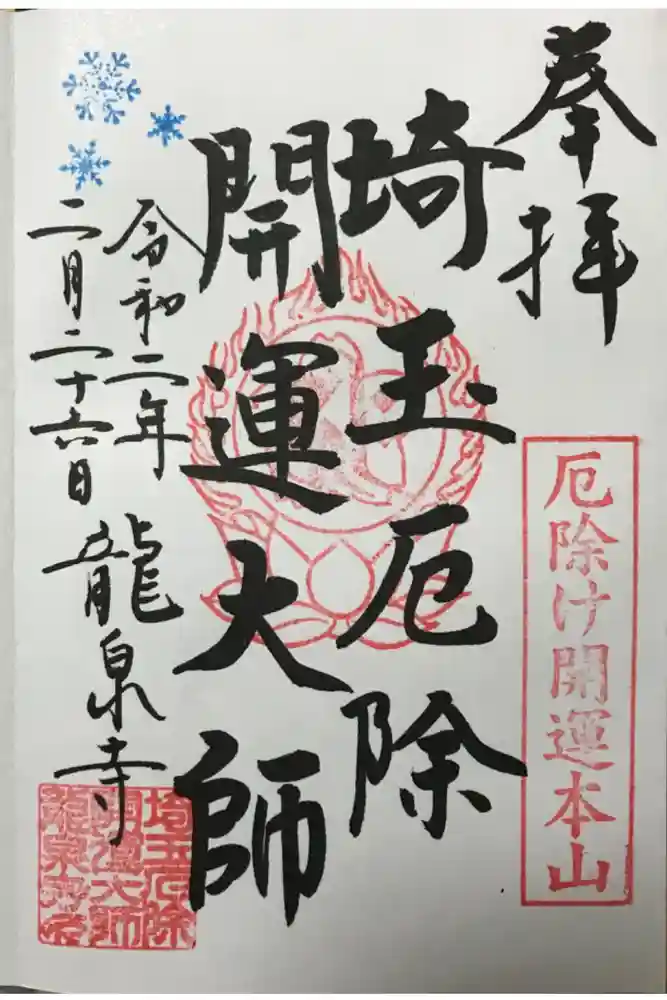 奉拝
厄除け開運本山
埼玉厄除
開運大師
令和二年
二月二十六日
龍泉寺
埼玉厄除
開運大師